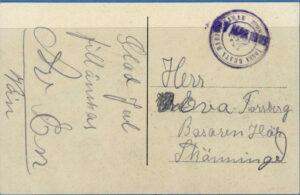 Glad Jul
tillönskas
Av En
Vän
Herr
Eva Forsberg
Basaren
Skänninge